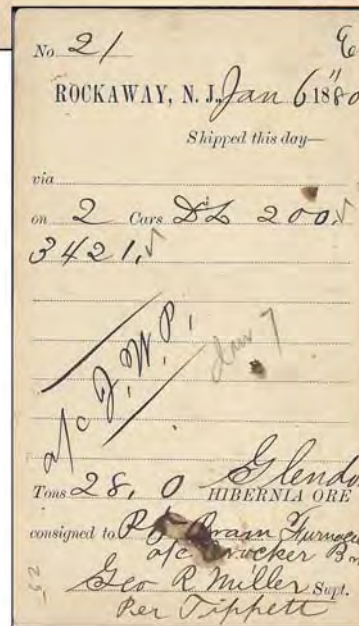 No. 21
ROCKAWAY, N. J., Jan 6" 1880
Shipped this day—
via
on 2 Cars 200. √
3421, √
a/c J. W. P.
Jan 7
Glendo
Tons 28, 0 HIBERNIA ORE
consigned to Furnace
a/c Crocker B
Geo R Miller Supt.
Per Tippett